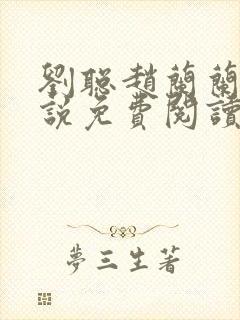 劉聰趙蘭蘭
說免費閱讀
夢三生著